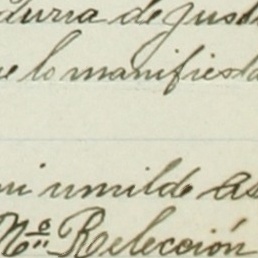 duria de Just
e lo manifiesta
mi umilde as
Nº Relección